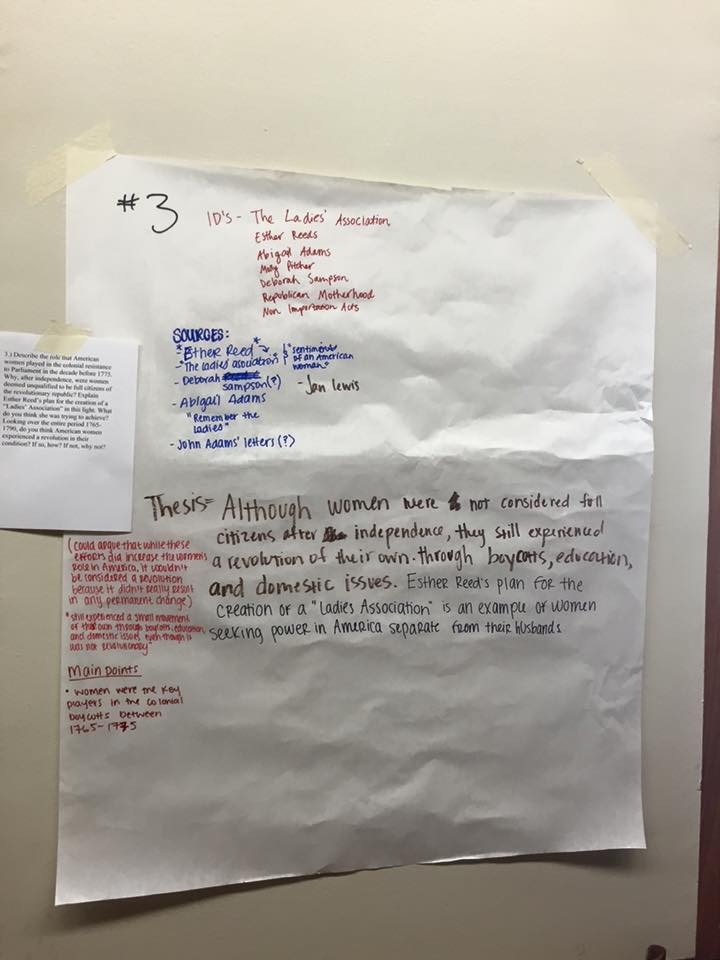 #3
ID's - The Ladies' Association
Esther Reeds
Abigail Adams
Molly Pitcher
Deborah Sampson
Republican Motherhood
Non Importation Acts
SOURCES:
- *Esther Reed* → "sentiments
- "The ladies' association" of an American
woman"
- Deborah sampson(?)
- Jan Lewis
- Abigail Adams
"Remember the
ladies"
- John Adams' letters (?)
3.) Describe the role that American
women played in the colonial resistance
to Parliament in the decade before 1775.
Why, after independence, were women
deemed unqualified to be full citizens of
the revolutionary republic? Explain
Esther Reed's plan for the creation of a
"Ladies' Association" in this fight. What
do you think she was trying to achieve?
Looking over the entire period 1765-
1790, do you think American women
experienced a revolution in their
condition? If so, how? If not, why not?
Thesis= Although women were not considered full
citizens after independence, they still experienced
a revolution of their own through boycotts, education,
and domestic issues. Esther Reed's plan for the
creation of a "Ladies Association" is an example of women
seeking power in America separate from their husbands
(could argue that while these
efforts did increase the women's
role in America, it wouldn't
be considered a revolution
because it didn't really result
in any permanent change)
"still experienced a small movement
of their own through boycotts, education,
and domestic issues, even though it
was not revolutionary"
Main points
• women were the key
players in the colonial
boycotts between
1765-1775